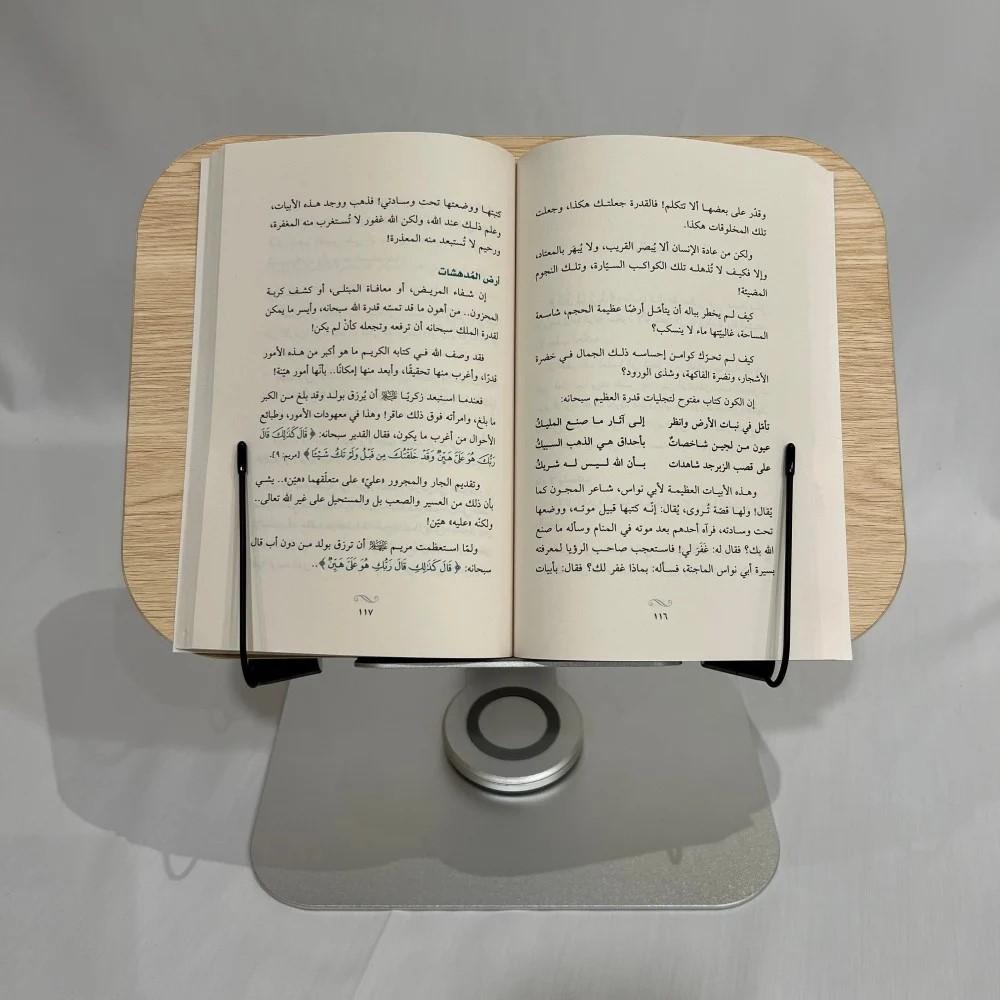 وقدّر على بعضها ألا تتكلم! فالقدرة جعلتك هكذا، وجعلت
تلك المخلوقات هكذا.
ولكن من عادة الإنسان ألا يُبصر القريب، ولا يُبهَر بالمعتاد،
وإلا فكيف لا تُذهله تلك الكواكب السيّارة، وتلك النجوم
المضيئة!
كيف لم يخطر بباله أن يتأمّل أرضًا عظيمة الحجم، شاسعة
المساحة، غالبيّتها ماء لا ينسكب؟
كيف لم تحرّك كوامن إحساسه ذلك الجمال في خضرة
الأشجار، ونضرة الفاكهة، وشذى الورود؟
إن الكون كتاب مفتوح لتجليات قدرة العظيم سبحانه:
تأمّل في نبات الأرض وانظر إلى آثار ما صنع المليكُ
عيون من لجين شاخصاتٌ بأحداق هي الذهب السبيكُ
على قصب الزبرجد شاهدات بأن الله ليس له شريكُ
وهذه الأبيات العظيمة لأبي نواس، شاعر المجون كما
يُقال! ولها قصّة تُروى، يُقال: إنّه كتبها قبيل موته، ووضعها
تحت وسادته، فرآه أحدهم بعد موته في المنام وسأله ما صنع
الله بك؟ فقال له: غَفَرَ لي! فاستعجب صاحب الرؤيا لمعرفته
بسيرة أبي نواس الماجنة، فسأله: بماذا غفر لك؟ فقال: بأبيات
١١٦
كتبتها ووضعتها تحت وسادتي! فذهب ووجد هذه الأبيات،
وعلم ذلك عند الله، ولكن الله غفور لا تُستغرب منه المغفرة،
ورحيم لا تُستبعد منه المعذرة!
أرض المُدهشات
إن شفاء المريض، أو معافاة المبتلى، أو كشف كربة
المحزون.. من أهون ما قد تمسّه قدرة الله سبحانه، وأيسر ما يمكن
لقدرة الملك سبحانه أن ترفعه وتجعله كأنْ لم يكن!
فقد وصف الله في كتابه الكريم ما هو أكبر من هذه الأمور
قدرًا، وأغرب منها تحقيقًا، وأبعد منها إمكانًا.. بأنّها أمور هيّنة!
فعندما استبعد زكريّا ﷺ أن يُرزق بولد وقد بلغ من الكبر
ما بلغ، وامرأته فوق ذلك عاقر! وهذا في معهودات الأمور، وطبائع
الأحوال من أغرب ما يكون، فقال القدير سبحانه: ﴿قَالَ كَذَٰلِكَ قَالَ
رَبُّكَ هُوَ عَلَيَّ هَيِّنٌ وَقَدْ خَلَقْتُكَ مِن قَبْلُ وَلَمْ تَكُ شَيْئًا﴾ [مريم: ٩].
وتقديم الجار والمجرور «عليّ» على متعلّقهما «هيّن».. يشي
بأن ذلك من العسير والصعب بل والمستحيل على غير الله تعالى..
ولكنّه «عليه» هيّن!
ولمّا استعظمت مريم أن ترزق بولد من دون أب قال
سبحانه: ﴿قَالَ كَذَٰلِكِ قَالَ رَبُّكِ هُوَ عَلَيَّ هَيِّنٌ﴾..
١١٧